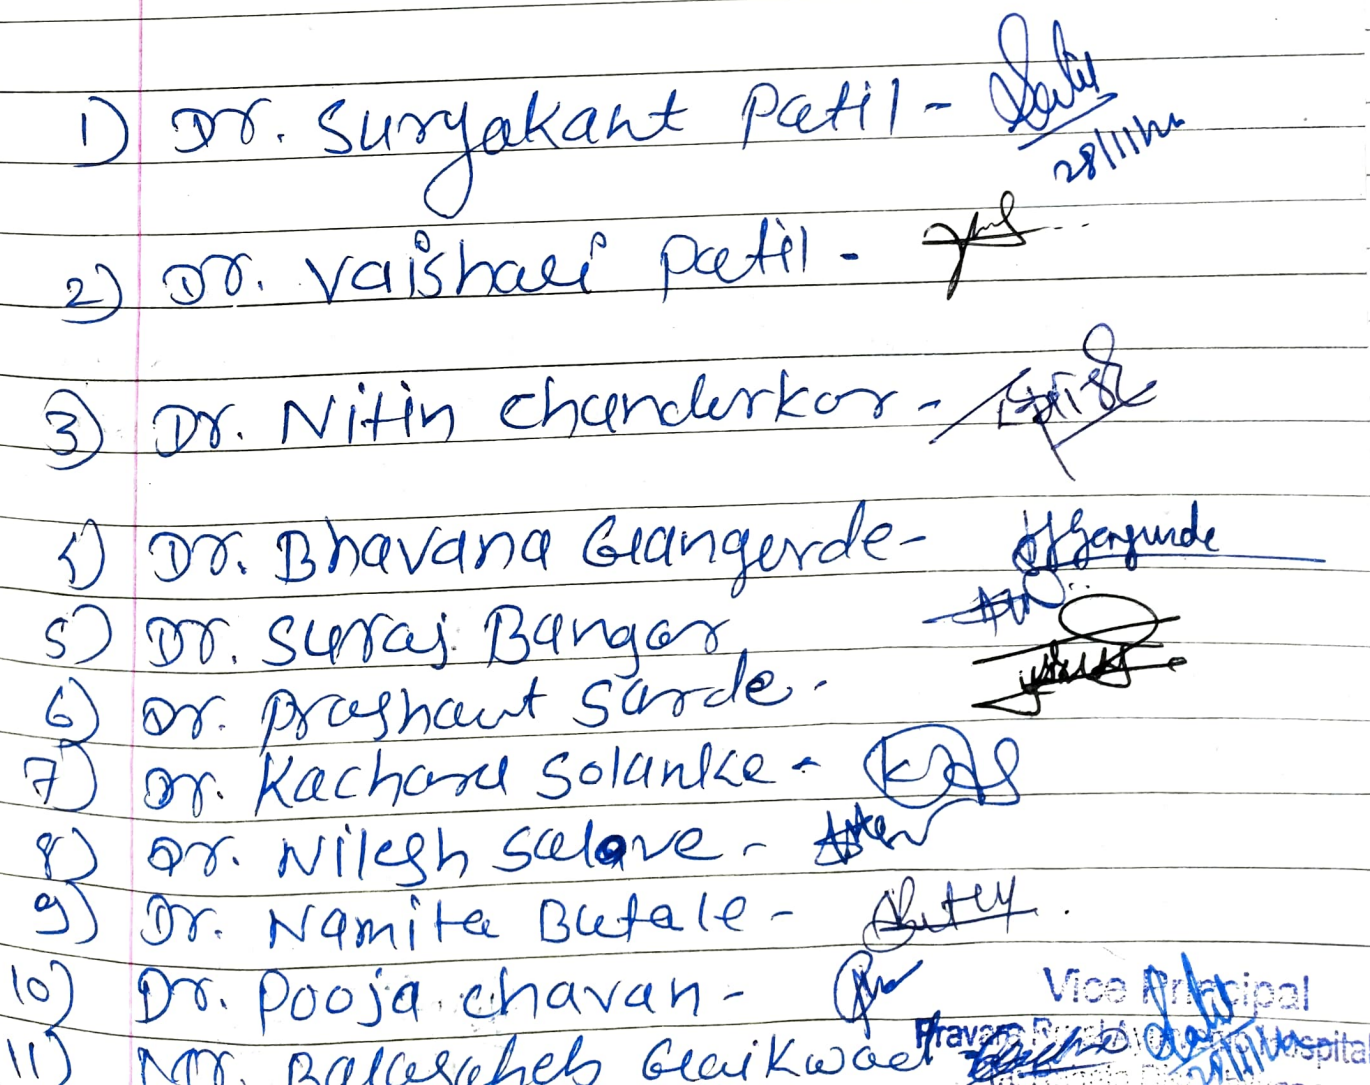 1) Dr. Suryakant Patil -
28/11/22
2) Dr. Vaishali Patil -
3) Dr. Nitin Chanderkar -
4) Dr. Bhavana Gangurde -
5) Dr. Suraj Bangar
6) Dr. Prashant Sarde -
7) Dr. Kacharu Solanke -
8) Dr. Nilesh Salave -
9) Dr. Namita Butale -
10) Dr. Pooja Chavan -
Vice Principal
11) Mr. Balasaheb Gaikwad